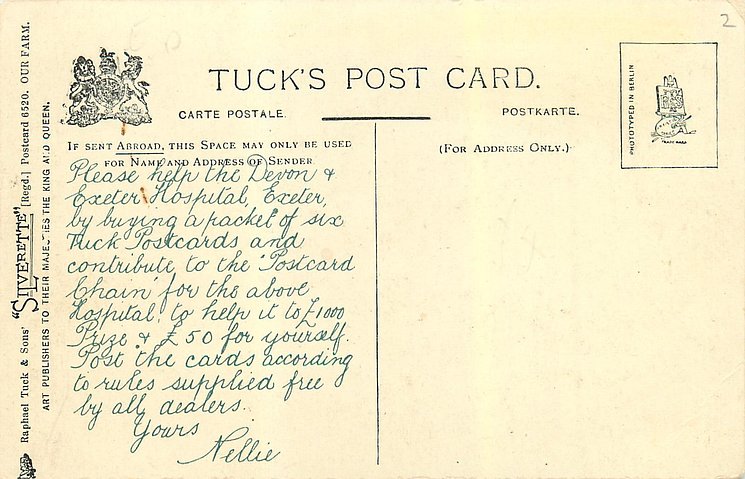 2
TUCK'S POST CARD.
CARTE POSTALE.
POSTKARTE.
IF SENT ABROAD, THIS SPACE MAY ONLY BE USED
FOR NAME AND ADDRESS OF SENDER
(FOR ADDRESS ONLY.)
Please help the Devon &
Exeter Hospital, Exeter,
by buying a packet of six
Tuck Postcards and
contribute to the "Postcard
Chain" for the above
Hospital, to help it to £1000
Prize & £50 for yourself.
Post the cards according
to rules supplied free
by all dealers.
Yours
Nellie
Raphael Tuck & Sons' "SILVERETTE" [Regd.] Postcard 6520. OUR FARM.
ART PUBLISHERS TO THEIR MAJESTIES THE KING AND QUEEN.
PHOTOTYPED IN BERLIN
TRADE MARK